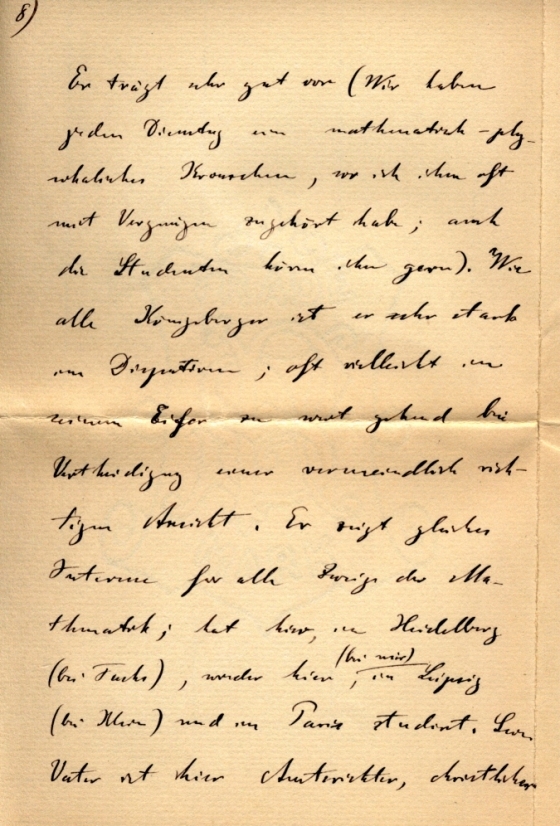 8)
Er trägt sehr gut vor (Wir haben
jeden Dienstag ein mathematisch-phy-
sikalisches Kränzchen, wo ich ihm oft
mit Vergnügen zugehört habe; auch
die Studenten hören ihn gern). Wie
alle Königsberger ist er sehr stark
im Disputiren; oft vielleicht in
seinem Eifer zu weit gehend bei
Vertheidigung einer vermeindlich rich-
tigen Ansicht. Er zeigt gleiches
Interesse für alle Zweige der Ma-
thematik; hat hier, in Heidelberg
(bei Fuchs), wieder hier (bei mir), in Leipzig
(bei Klein) und in Paris studirt. Sein
Vater ist hier Amtsrichter, christlicher